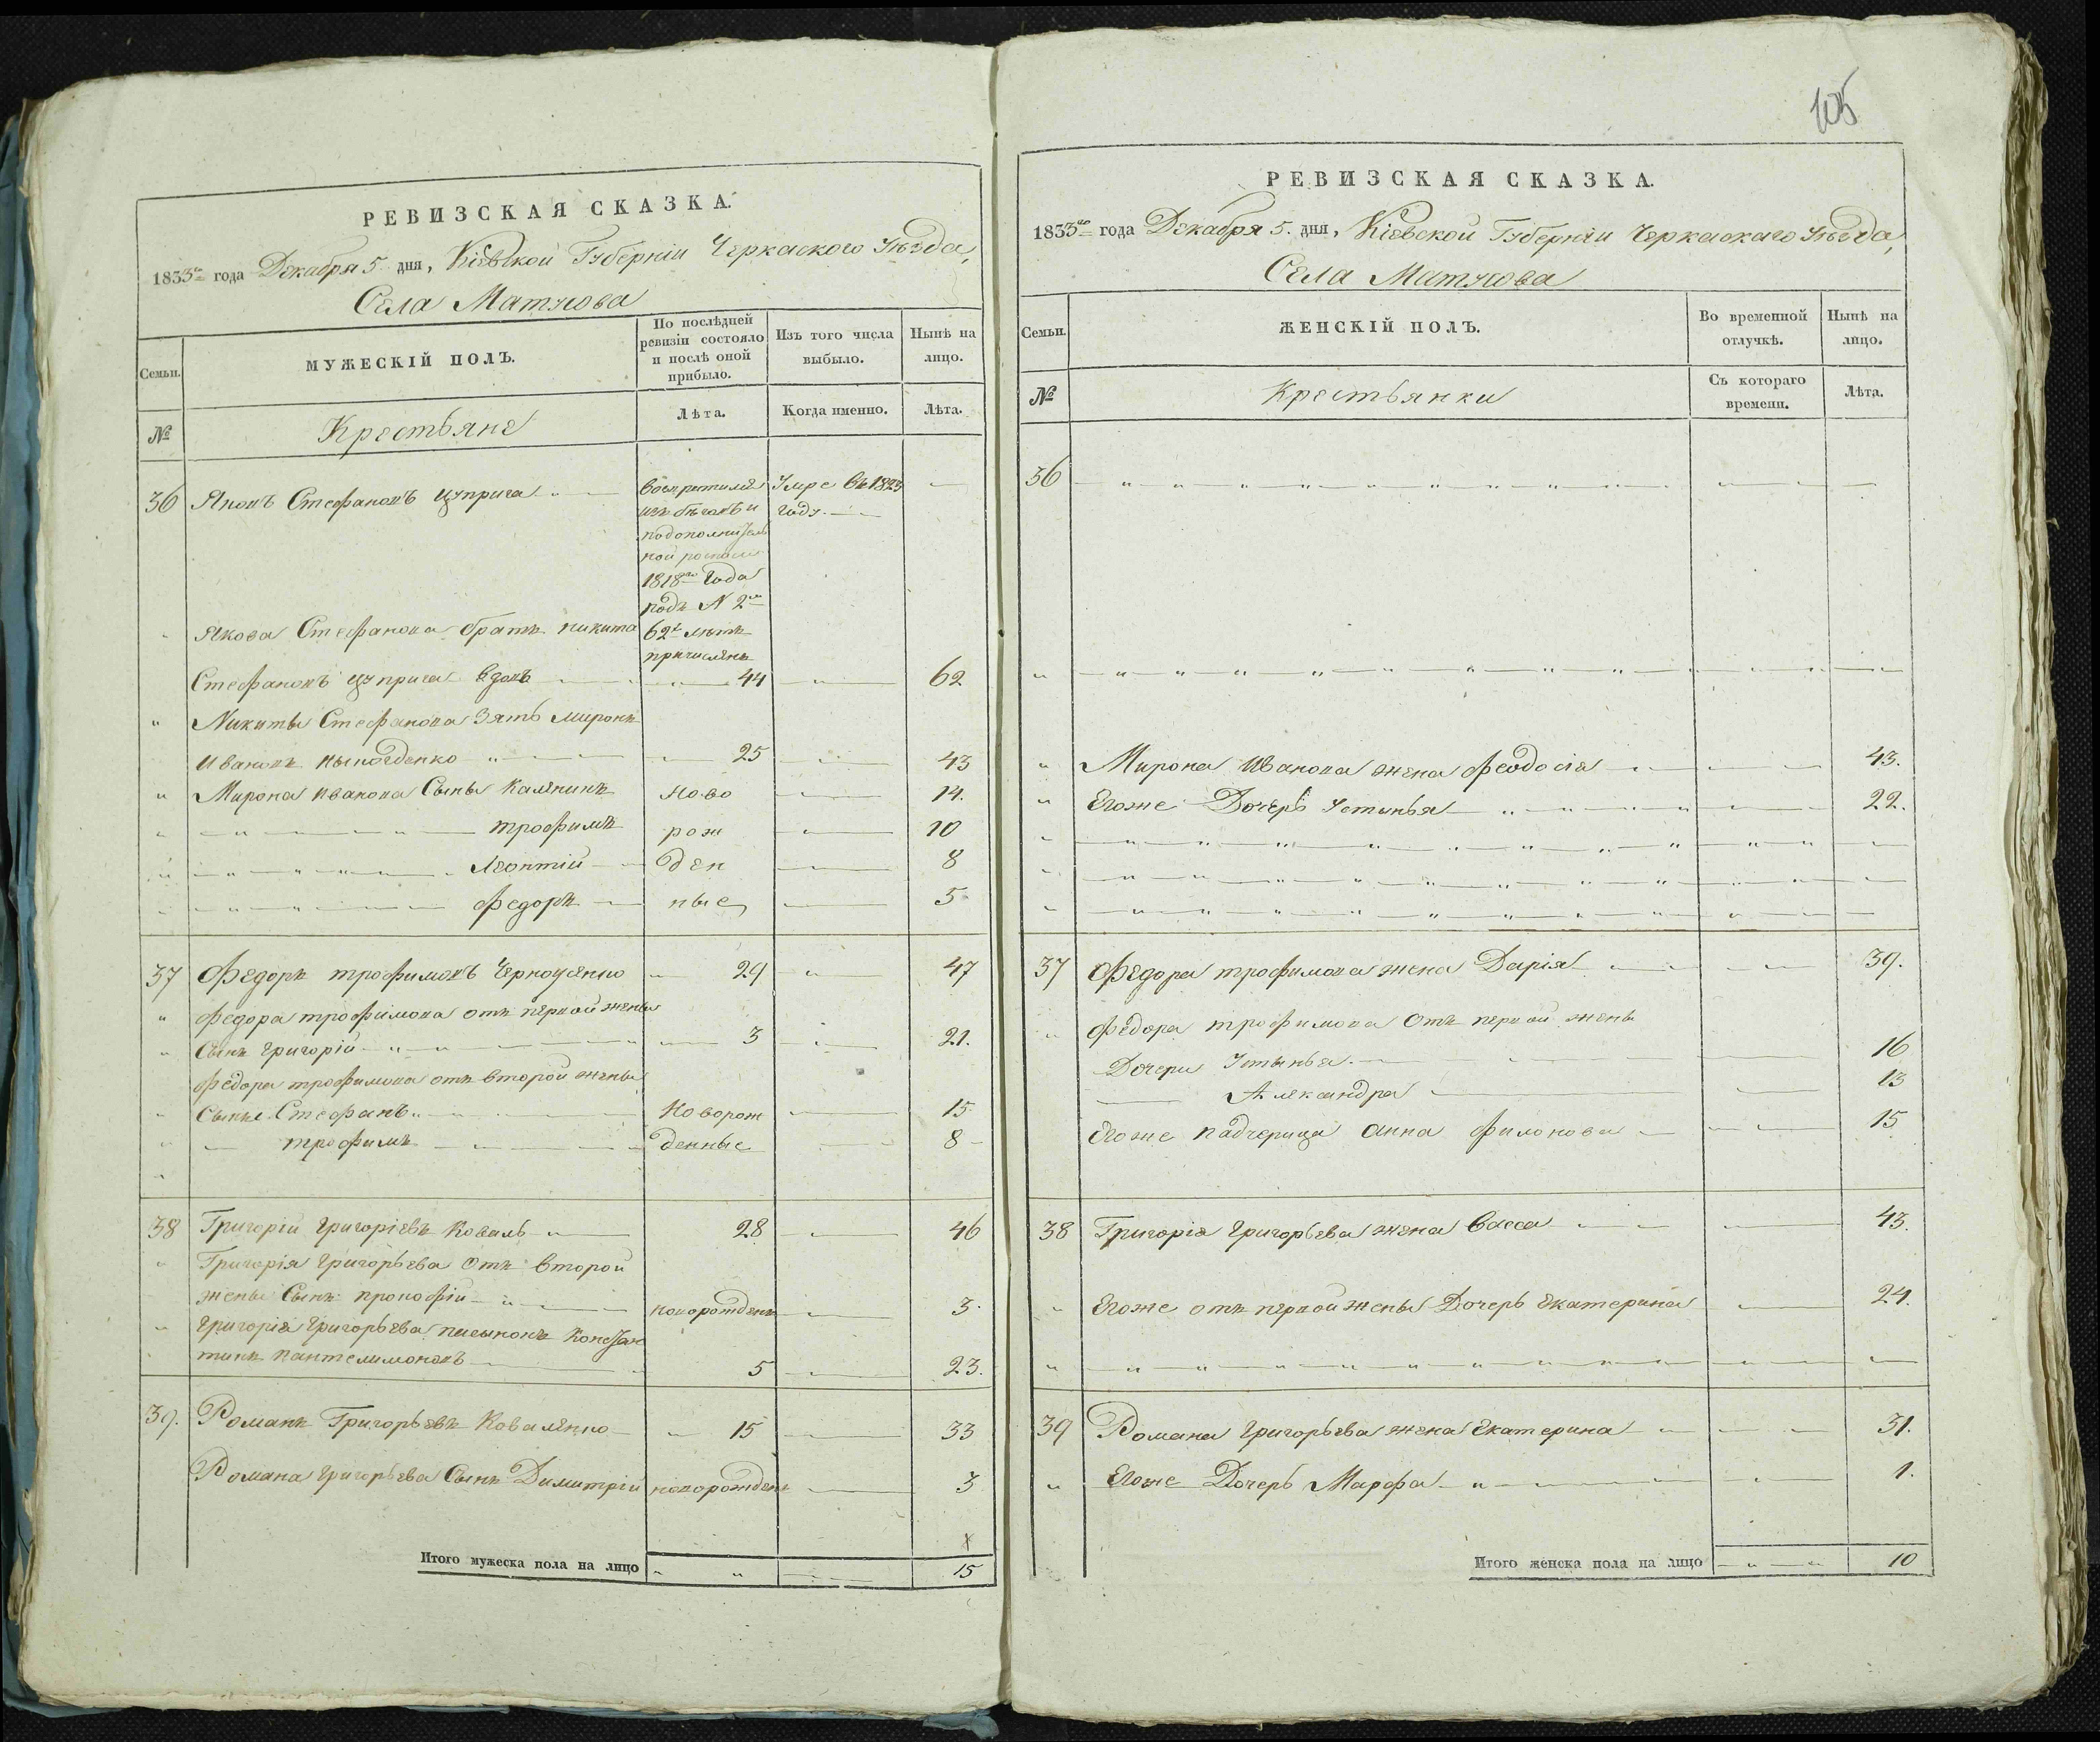 105
РЕВИЗСКАЯ СКАЗКА.
1833го года Декабря 5. дня, Кіевской Губерніи Черкаского Уѣзда,
Села Матусова
Семьи.
МУЖЕСКІЙ ПОЛЪ.
По послѣдней ревизіи состояло и послѣ оной прибыло.
Изъ того числа выбыло.
Нынѣ на лицо.
№
Крестьяне
Лѣта.
Когда именно.
Лѣта.
36 Яковъ Стефановъ Цуприга
возвратился Умре въ 1823
изъ бѣговъ и году.
по дополнитель
ной
1818го года
подъ N 2мъ
Якова Стефанова братъ никита 62х лѣтъ
причисленъ
Стефановъ Цуприга вдовъ 44 62
Никиты Стефанова Зять миронъ
Ивановъ 25 43
Мирона иванова Сыны Калѣникъ ново 14.
трофимъ рож 10
Леонтій ден 8
федоръ ные 5
37 Федоръ трофимовъ Черноусенко 29 47
федора трофимова отъ первой жены
Сынъ григорій 3 21.
федора трофимова отъ второй жены
Сыны Стефанъ Новорож 15
трофимъ денные 8
38 Григорій григоріевъ Коваль 28 46
Григорія григорьева отъ второй
жены Сынъ прокофій новорожденъ 3.
григорія григорьева пасынокъ Констан
тинъ пантелимоновъ 5 23.
39. Романъ Григорьевъ Коваленко 15 33
Романа григорьева Сынъ Димитрій новорожденъ 3
Итого мужеска пола на лицо 15
РЕВИЗСКАЯ СКАЗКА.
1833го года Декабря 5. дня, Кіевской Губерніи Черкаскаго Уѣзда,
Села Матусова
Семьи.
ЖЕНСКІЙ ПОЛЪ.
Во временной отлучкѣ.
Нынѣ на лицо.
№
Крестьянки
Съ котораго времени.
Лѣта.
36
Мирона Иванова жена феодосія 43.
Егоже Дочерь Устинья 22.
37 Федора трофимова жена Дарія 39.
федора трофимова отъ первой жены
Дочери Устинья. 16
Александра 13
Егоже падчерица Анна филонова 15
38 Григорія григорьева жена Васса 43.
Егоже отъ первой жены Дочерь Екатерина 24.
39 Романа григорьева жена Екатерина 31.
Егоже Дочерь Марфа 1.
Итого женска пола на лицо 10